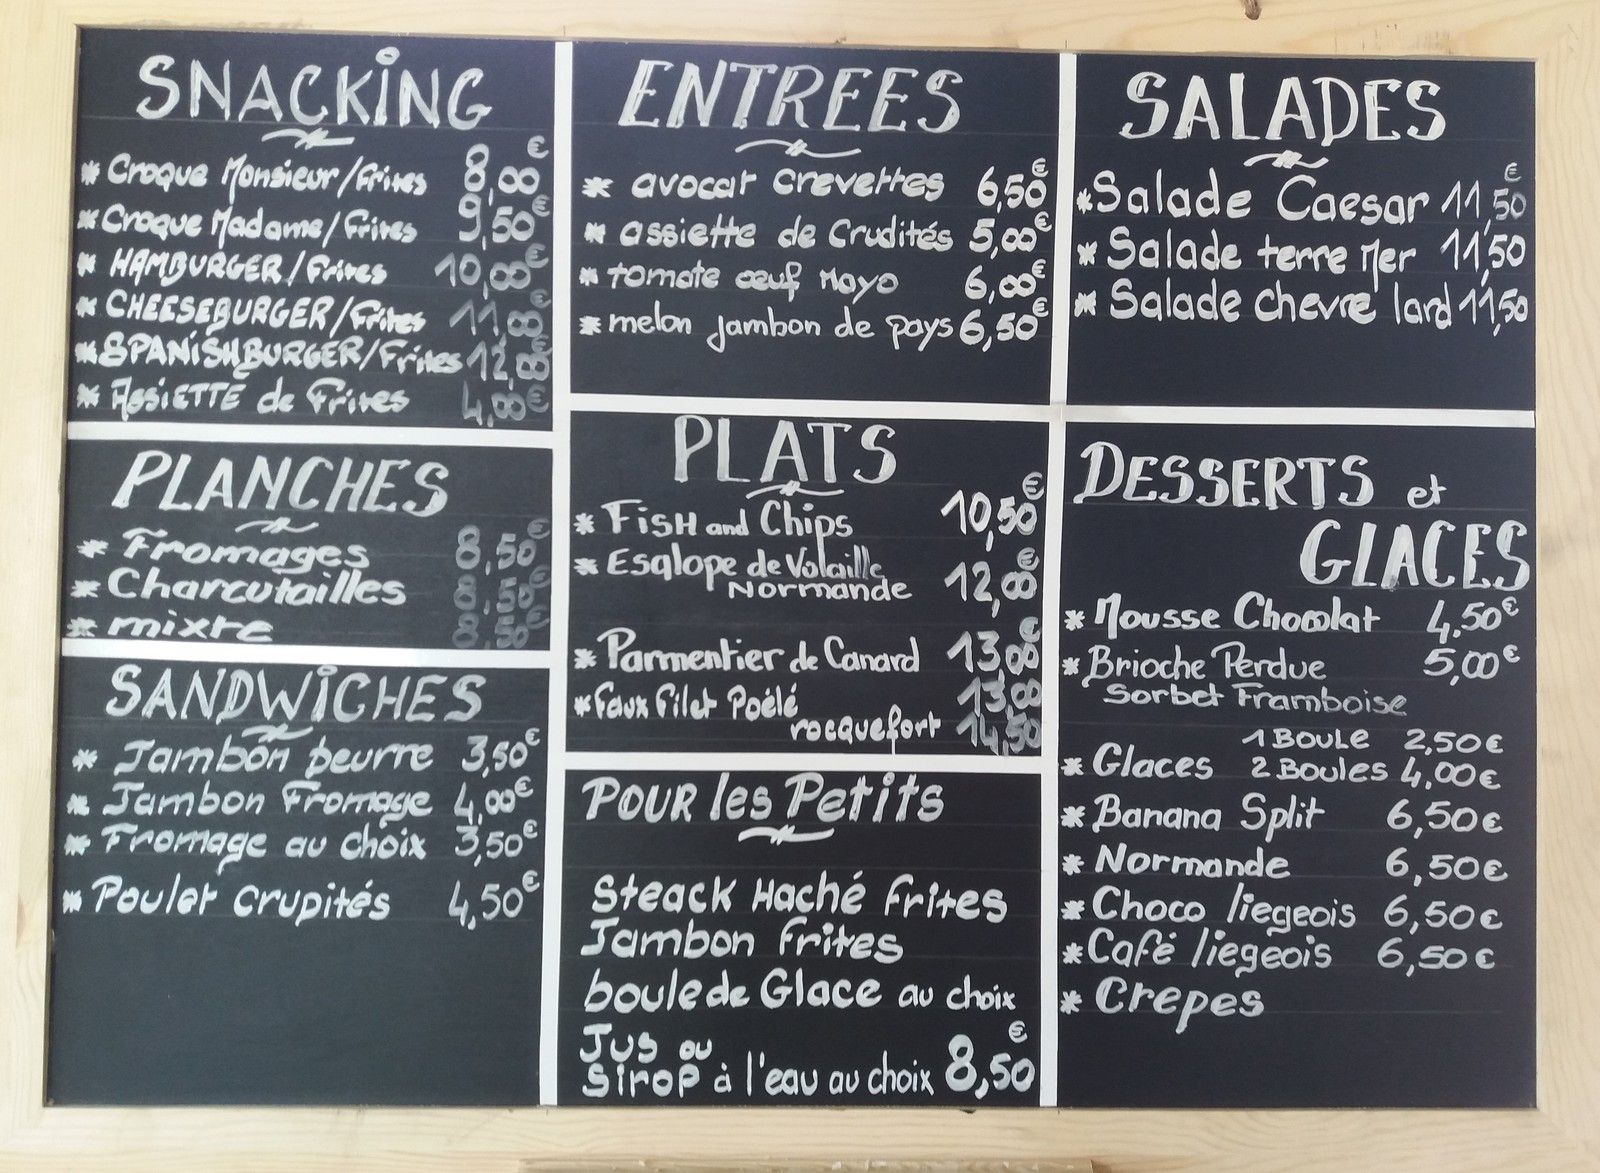 SNACKING
* Croque Monsieur/Frites 8,00€
* Croque Madame/Frites 9,50€
* HAMBURGER/Frites 10,00€
* CHEESEBURGER/Frites 11,00€
* SPANISHBURGER/Frites 12,00€
* ASSIETTE de Frites 4,00€
PLANCHES
* Fromages 8,50€
* Charcutailles 8,50€
* mixte 8,50€
SANDWICHES
* Jambon beurre 3,50€
* Jambon Fromage 4,00€
* Fromage au choix 3,50€
* Poulet crupités 4,50€
ENTREES
* avocat crevettes 6,50€
* assiette de Crudités 5,00€
* tomate œuf Mayo 6,00€
* melon jambon de pays 6,50€
PLATS
* FisH and Chips 10,50€
* Esqlope de Volaille
Normande 12,00€
* Parmentier de Canard 13,00€
* Faux Filet Poêlé 13,00
rocquefort 14,50
POUR les Petits
Steack Haché Frites
Jambon Frites
boule de Glace au choix
Jus ou
Sirop à l'eau au choix 8,50€
SALADES
* Salade Caesar 11,50€
* Salade terre Mer 11,50
* Salade chevre lard 11,50
DESSERTS et
GLACES
* Mousse Chocolat 4.50€
* Brioche Perdue 5,00€
Sorbet Framboise
1 BOULE 2,50€
* Glaces 2 BOULES 4,00€
* Banana Split 6,50€
* Normande 6,50€
* Choco liegeois 6,50€
* Café liegeois 6,50€
* Crepes